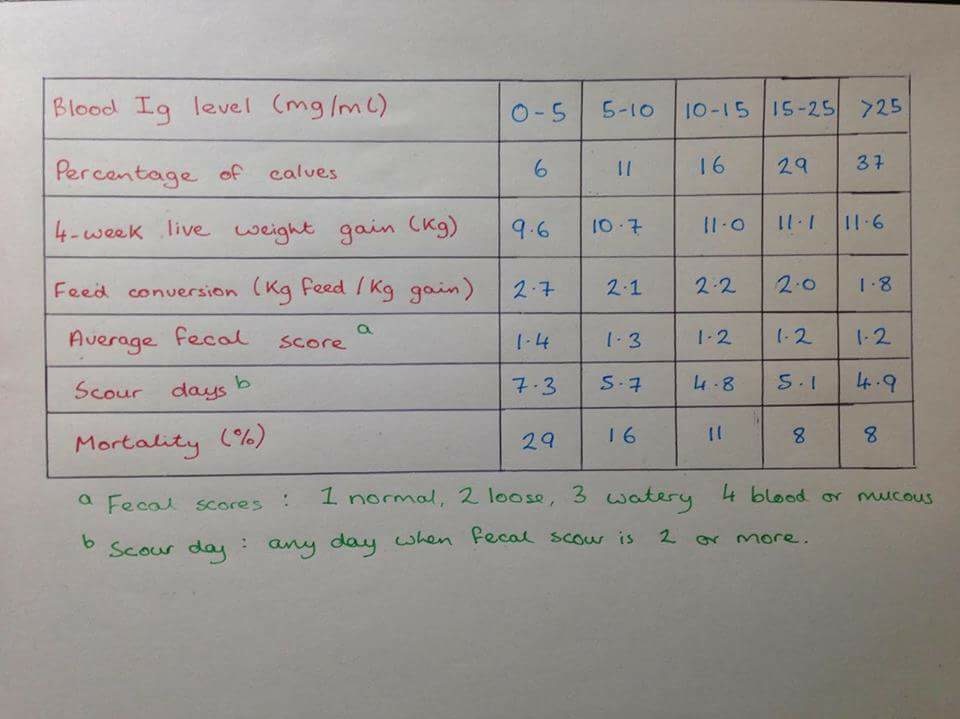 Blood Ig level (mg/ml) 0-5 5-10 10-15 15-25 >25
Percentage of calves 6 11 16 29 37
4-week live weight gain (Kg) 9.6 10.7 11.0 11.1 11.6
Feed conversion (Kg feed/Kg gain) 2.7 2.1 2.2 2.0 1.8
Average fecal score a 1.4 1.3 1.2 1.2 1.2
Scour days b 7.3 5.7 4.8 5.1 4.9
Mortality (%) 29 16 11 8 8
a Fecal scores : 1 normal, 2 loose, 3 watery 4 blood or mucous
b Scour day : any day when fecal scour is 2 or more.